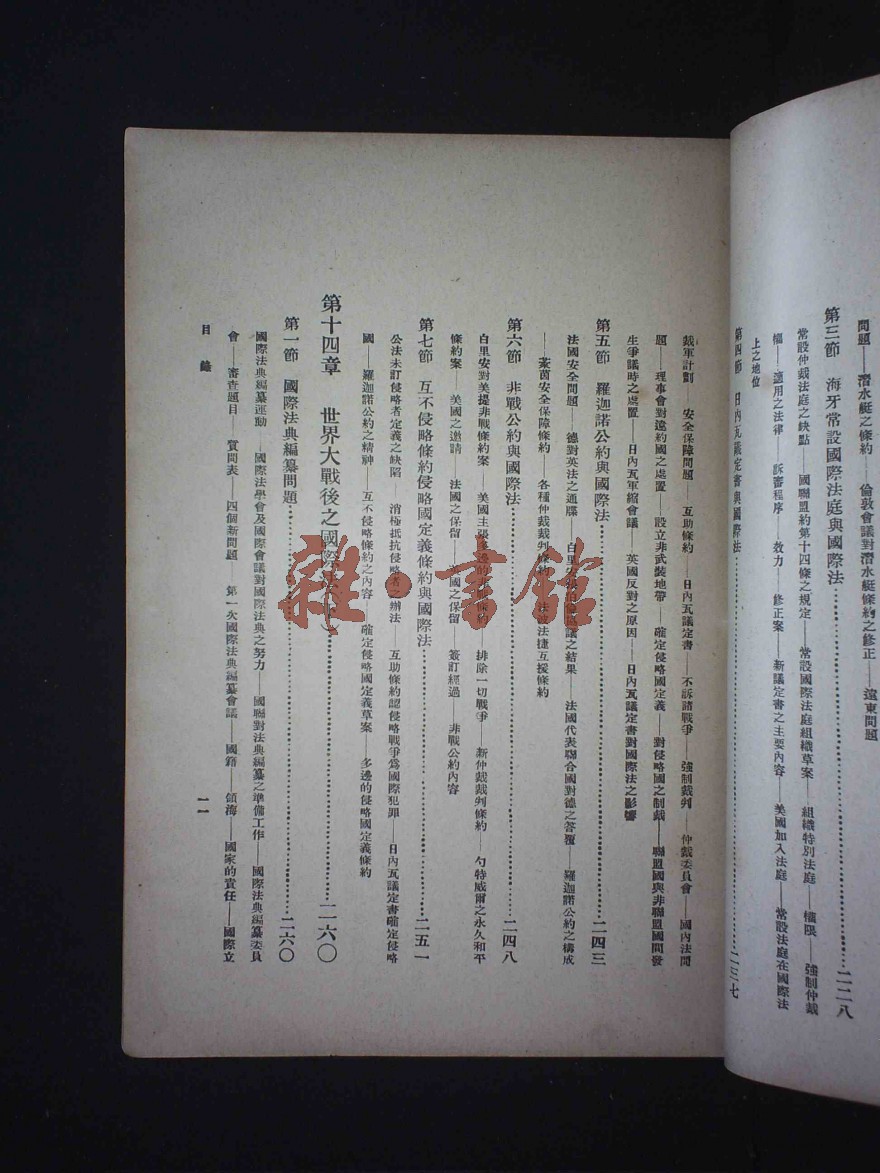 問題——潛水艇之條約——倫敦會議對潛水艇條約之修正——遠東問題
第三節　海牙常設國際法庭與國際法…………二二八
常設仲裁法庭之缺點——國聯盟約第十四條之規定——常設國際法庭組織草案——組織特別法庭——權限——強制仲裁
權——適用之法律——訴審程序——效力——修正案——新議定書之主要內容——美國加入法庭——常設法庭在國際法
上之地位
第四節　日內瓦議定書與國際法…………二三七
裁軍計劃——安全保障問題——互助條約——日內瓦議定書——不訴諸戰爭——強制裁判——仲裁委員會——國內法問
題——理事會對違約國之處置——設立非武裝地帶——確定侵略國定義——對侵略國之制裁——聯盟國與非聯盟國間發
生爭議時之處置——日內瓦軍縮會議——英國反對之原因——日內瓦議定書對國際法之影響
第五節　羅迦諾公約與國際法…………二四三
法國安全問題——德對英法之通牒——白里安張伯倫協議之結果——法國代表聯合國對德之答覆——羅迦諾公約之構成
——萊茵安全保障條約——各種仲裁裁判條約——法波法捷互援條約
第六節　非戰公約與國際法…………二四八
白里安對美提非戰條約案——美國主張多邊的非戰條約——排除一切戰爭——新仲裁裁判條約——勺特威爾之永久和平
條約案——美國之邀請——法國之保留——英國之保留——簽訂經過——非戰公約內容
第七節　互不侵略條約侵略國定義條約與國際法…………二五一
公法未訂侵略者定義之缺陷——消極抵抗侵略者之辦法——互助條約認侵略戰爭爲國際犯罪——日內瓦議定書確定侵略
國——羅迦諾公約之精神——互不侵略條約之內容——確定侵略國定義草案——多邊的侵略國定義條約
第十四章　世界大戰後之國際法…………二六〇
第一節　國際法典編纂問題…………二六〇
國際法典編纂運動——國際法學會及國際會議對國際法典之努力——國聯對法典編纂之準備工作——國際法典編纂委員
會——審查題目——質問表——四個新問題——第一次國際法典編纂會議——國籍——領海——國家的責任——國際立
目錄
一一
雜·書館